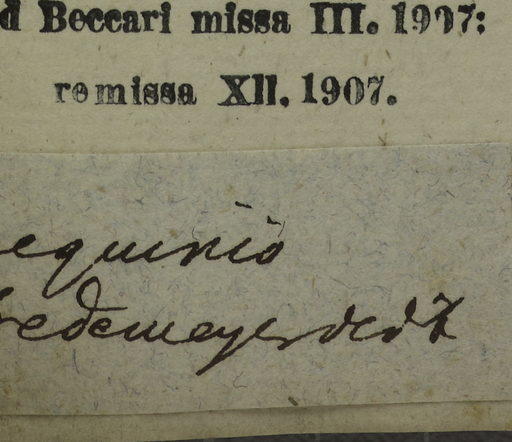 d Beccari missa III. 1907:
remissa XII. 1907.
equinio
redemeyer dedt